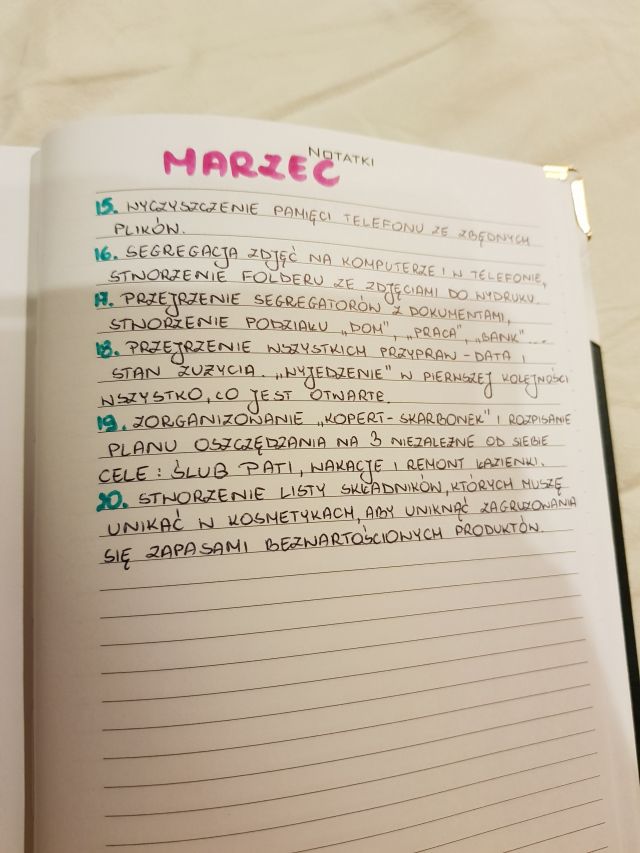 NOTATKI
MARZEC
15. WYCZYSZCZENIE PAMIĘCI TELEFONU ZE ZBĘDNYCH
PLIKÓW.
16. SEGREGACJA ZDJĘĆ NA KOMPUTERZE I W TELEFONIE,
STWORZENIE FOLDERU ZE ZDJĘCIAMI DO WYDRUKU.
17. PRZEJRZENIE SEGREGATORÓW Z DOKUMENTAMI,
STWORZENIE PODZIAŁU „DOM”, „PRACA”, „BANK”...
18. PRZEJRZENIE WSZYSTKICH PRZYPRAW - DATA I
STAN ZUŻYCIA. „WYJEDZENIE” W PIERWSZEJ KOLEJNOŚCI
WSZYSTKO, CO JEST OTWARTE.
19. ZORGANIZOWANIE „KOPERT-SKARBONEK” I ROZPISANIE
PLANU OSZCZĘDZANIA NA 3 NIEZALEŻNE OD SIEBIE
CELE: ŚLUB PATI, WAKACJE I REMONT ŁAZIENKI.
20. STWORZENIE LISTY SKŁADNIKÓW, KTÓRYCH MUSZĘ
UNIKAĆ W KOSMETYKACH, ABY UNIKNĄĆ ZAGRUZOWANIA
SIĘ ZAPASAMI BEZWARTOŚCIOWYCH PRODUKTÓW.